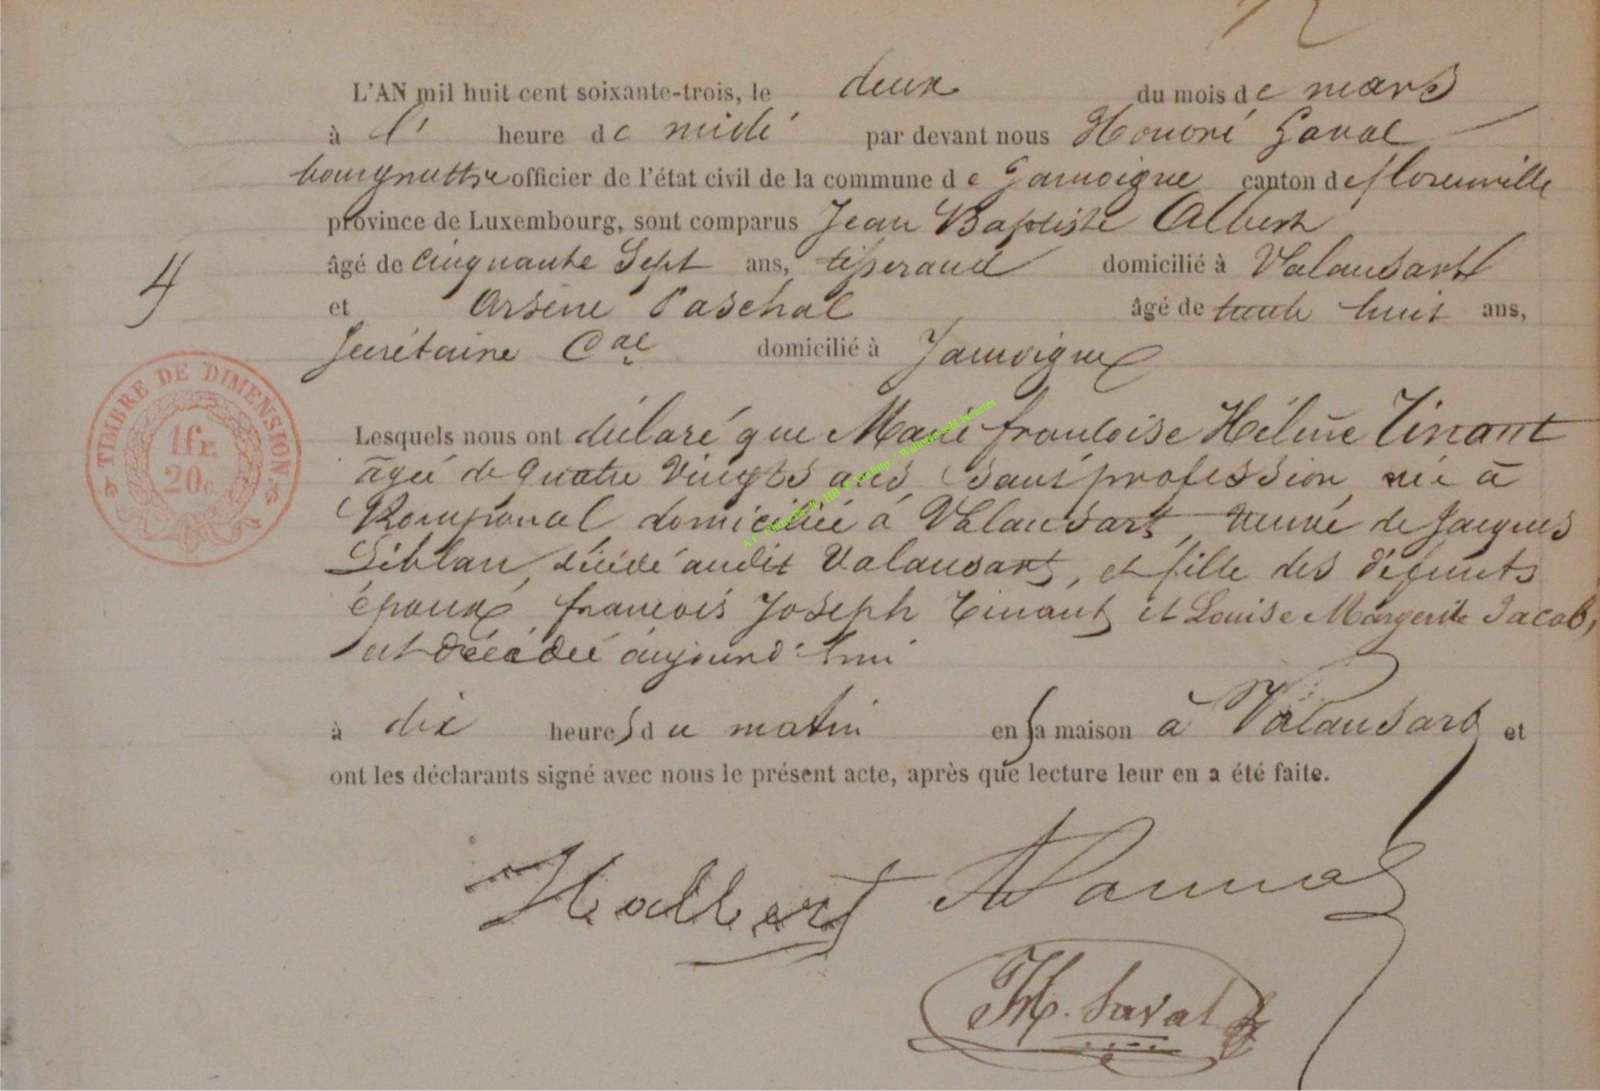 L'AN mil huit cent soixante-trois, le deux du mois de mars
à l' heure de midi par devant nous Honoré
bourgmestre officier de l'état civil de la commune de Jamoigne canton de florenville
province de Luxembourg, sont comparus Jean Baptiste Albert
âgé de Cinquante Sept ans, tisserand domicilié à Valansart
et Arsène Paschal âgé de trente huit ans,
Secrétaire Cal domicilié à Jamoigne
4
TIMBRE DE DIMENSION.
1fr.
20c.
Lesquels nous ont déclaré que Marie françoise Hélène Tinant
agée de Quatre Vingts ans, Sans profession, née à
Romponcel domiciliée à Valansart, veuve de Jacques
Liblan, décédé audit Valansart, et fille des défunts
époux françois Joseph Tinant et Louise Margerite Jacob,
est décédée aujourd'hui
à dix heures du matin en sa maison à Valansart et
ont les déclarants signé avec nous le présent acte, après que lecture leur en a été faite.
Halbert
H.